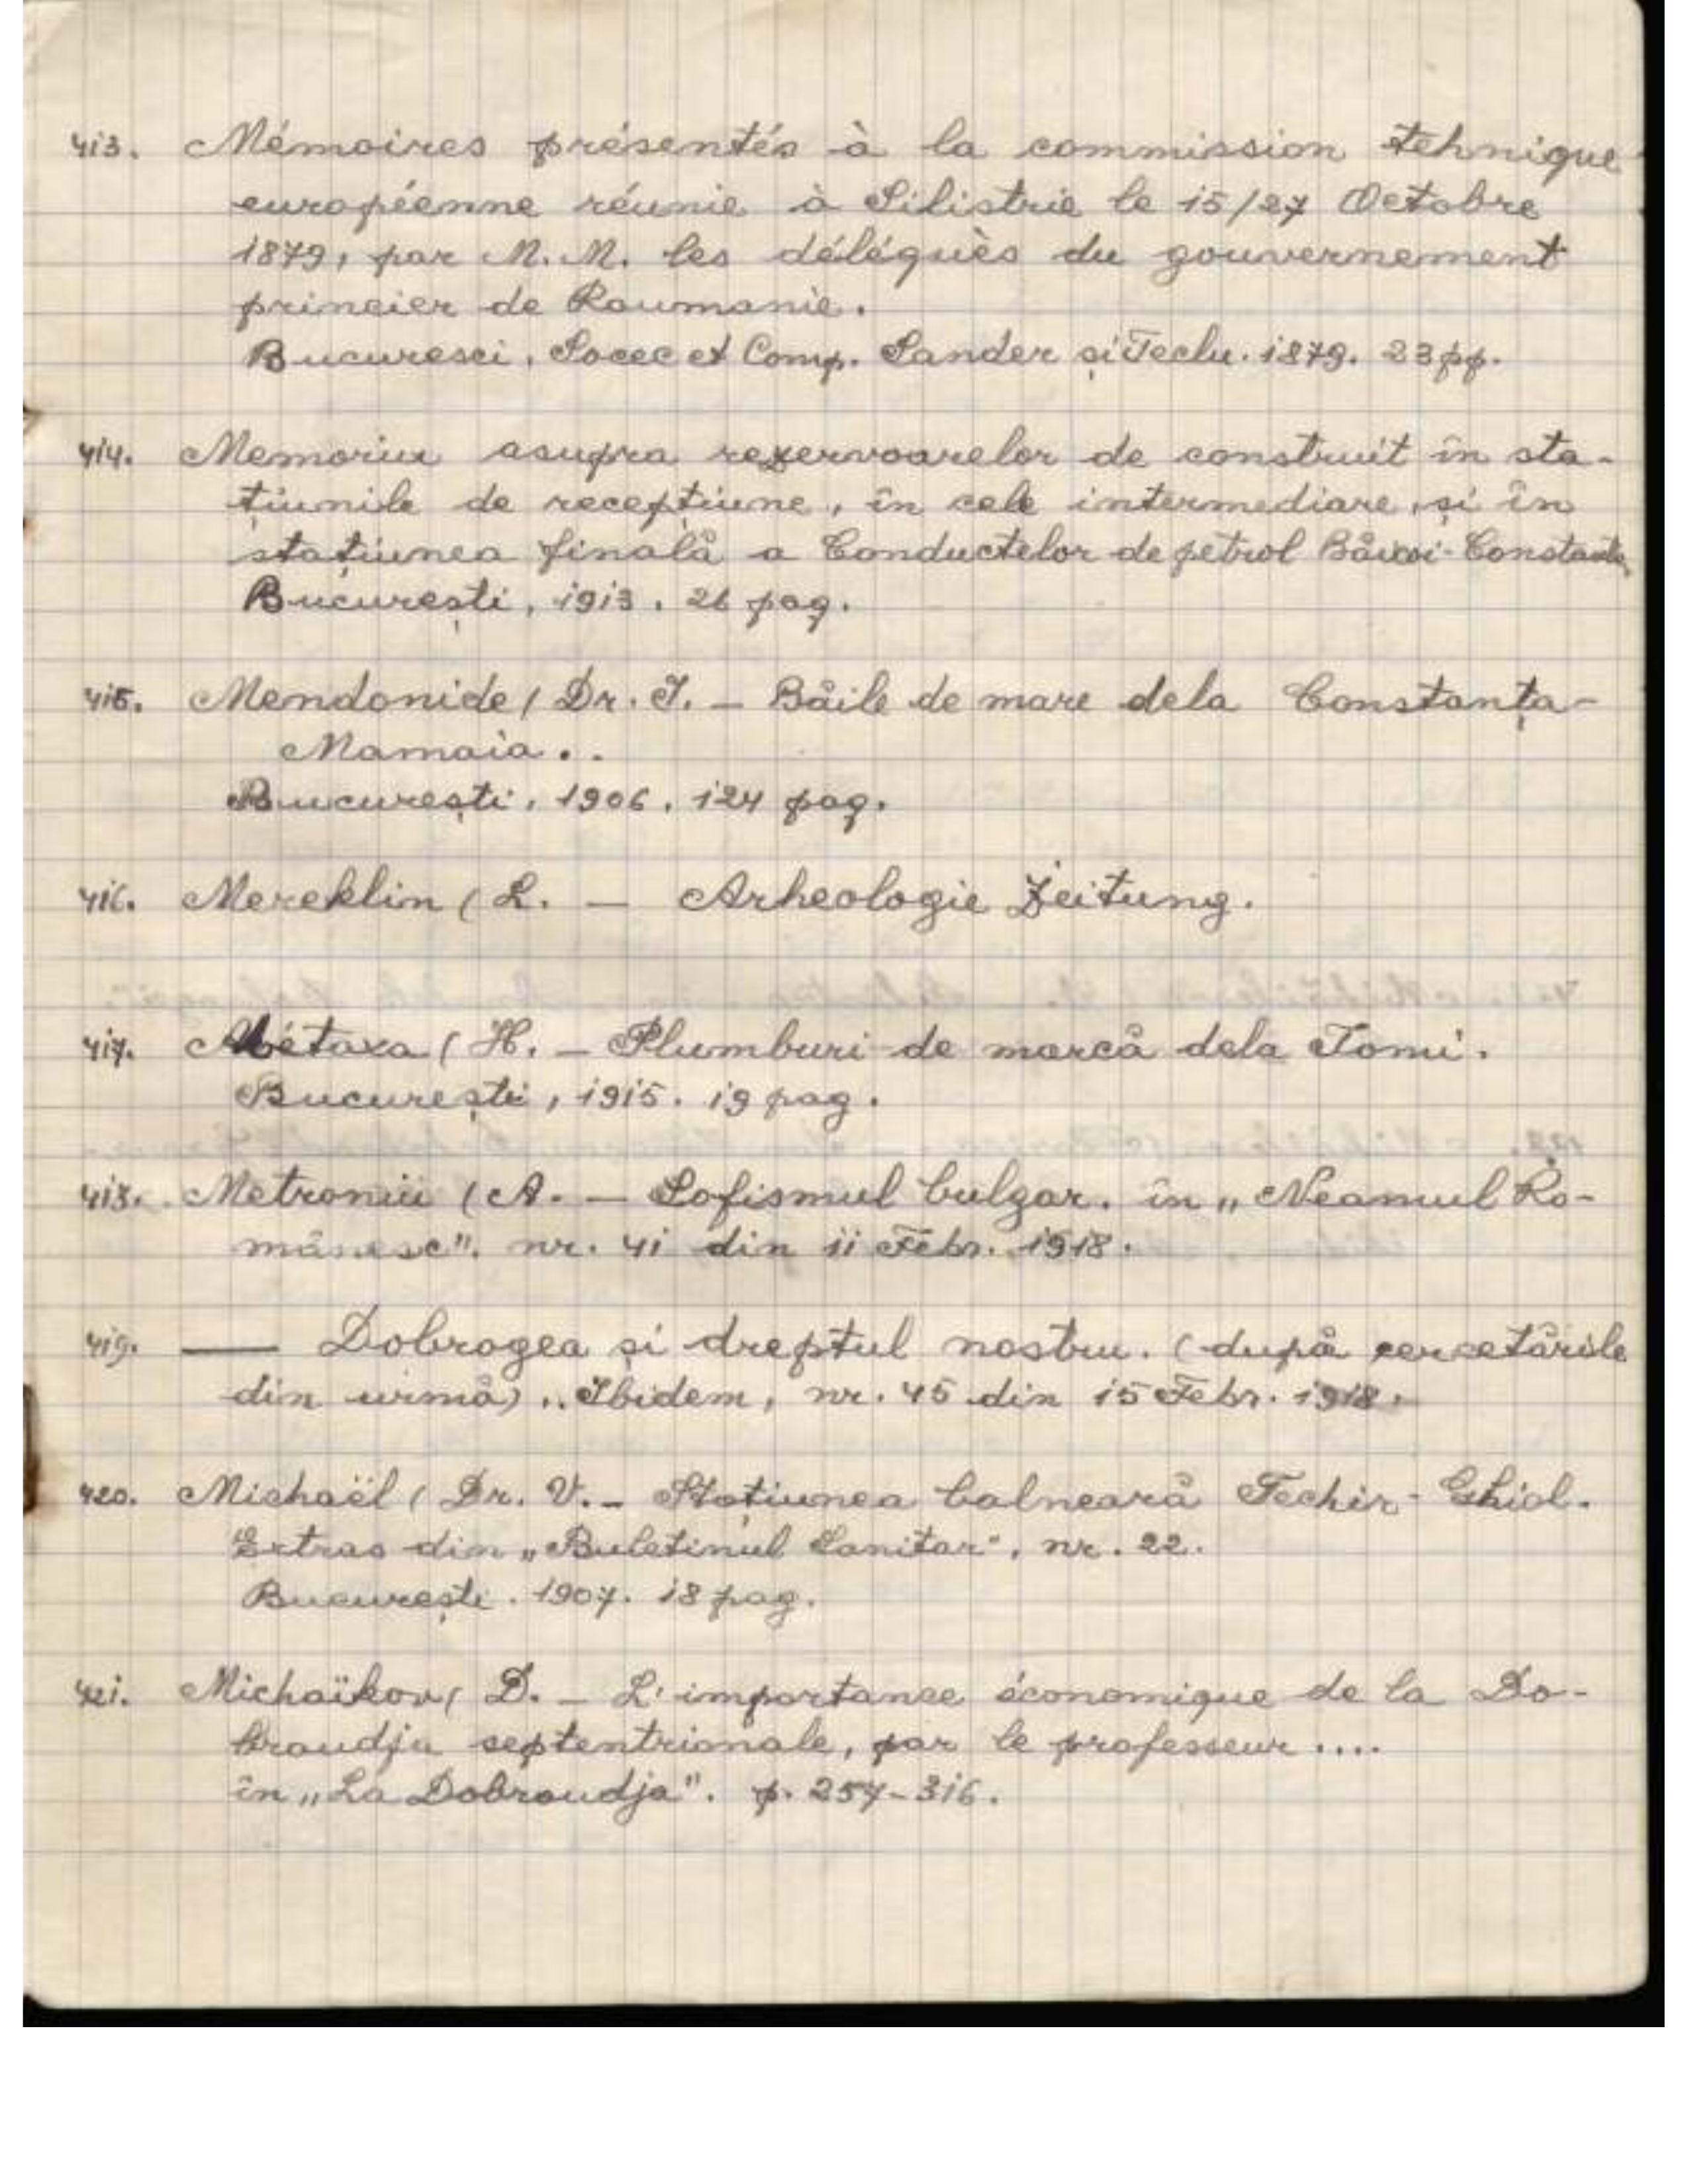 413. Mémoires présentés à la commission tehnique
européenne réunie à Silistrie le 15/27 Octobre
1879, par M. M. les délégués du gouvernement
princier de Roumanie.
Bucuresci, Socec et Comp. Sander și Teclu. 1879. 23 pp.
414. Memoriu asupra rezervoarelor de construit în sta-
țiunile de recepțiune, în cele intermediare, și în
stațiunea finală a Conductelor de petrol Băicoi-Constanța
București, 1913. 26 pag.
415. Mendonide (Dr. I. - Băile de mare dela Constanța-
Mamaia..
București, 1906. 124 pag.
416. Mereklin (L. - Arheologie Zeitung.
417. Métaxa (H. - Plumburi de marcă dela Tomi.
București, 1915. 19 pag.
418. Metroniu (A. - Sofismul bulgar. în „Neamul Ro-
mânesc". nr. 41 din 11 Febr. 1918.
419. — Dobrogea și dreptul nostru. (după cercetările
din urmă)„ Ibidem, nr. 45 din 15 Febr. 1918.
420. Michaël (Dr. V. - Stațiunea balneară Techir-Ghiol.
Extras din „Buletinul Sanitar", nr. 22.
București. 1907. 18 pag.
421. Michaïkov ( D. - L'importance économique de la Do-
broudja septentrionale, par le professeur ....
în „La Dobroudja". p. 257-316.